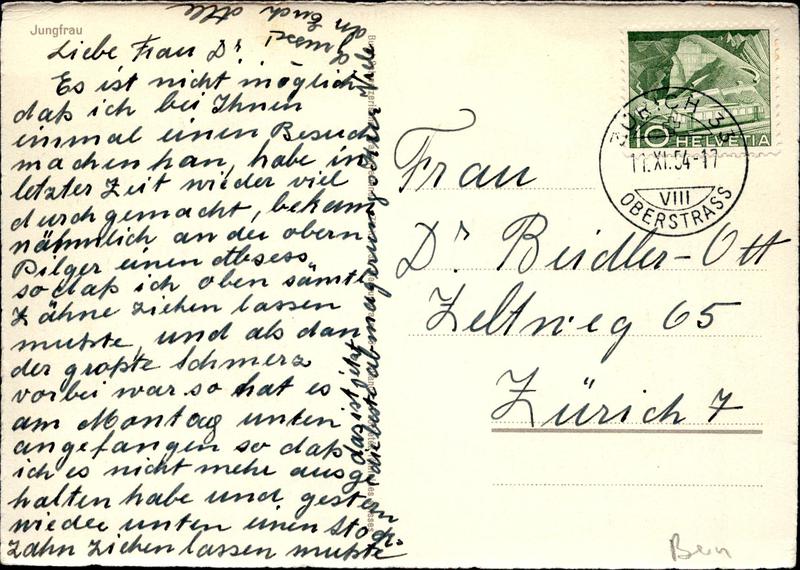 Jungfrau
Liebe Frau Dr!
Es ist nicht möglich
daß ich bei Ihnen
einmal einen Besuch
machen kan, habe in
letzter Zeit wieder viel
durchgemacht, bekam
nähmlich an der obern
Pilger einen Absess,
so daß ich oben sämtl.
Zähne ziehen lassen
mußte, und als dan
der größte Schmerz
vorbei war so hat es
am Montag unten
angefangen so daß
ich es nicht mehr ausge
halten habe und gestern
wieder unten einen Stock-
zahn ziehen lassen mußte
das ist jetzt
die beste Abmagerungskur
Viele
an Euch alle
HELVETIA
10
ZÜRICH 33
11.XI.54-17
VIII
OBERSTRASS
Frau
Dr. Beidler-Ott
Zeltweg 65
Zürich 7